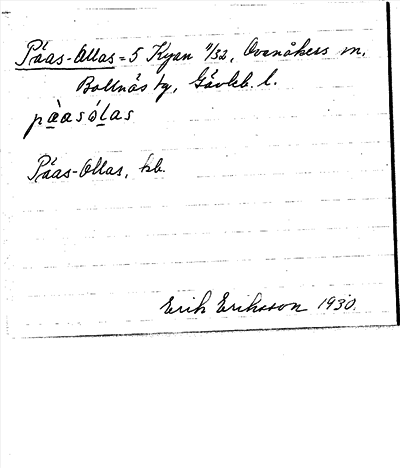 Påas-Ollas = 5 Kyan 9/32, Ovanåkers sn.
Bollnäs tg, Gävleb. l.
pàasólas
Påas-Ollas, hb.
Erik Eriksson 1930.